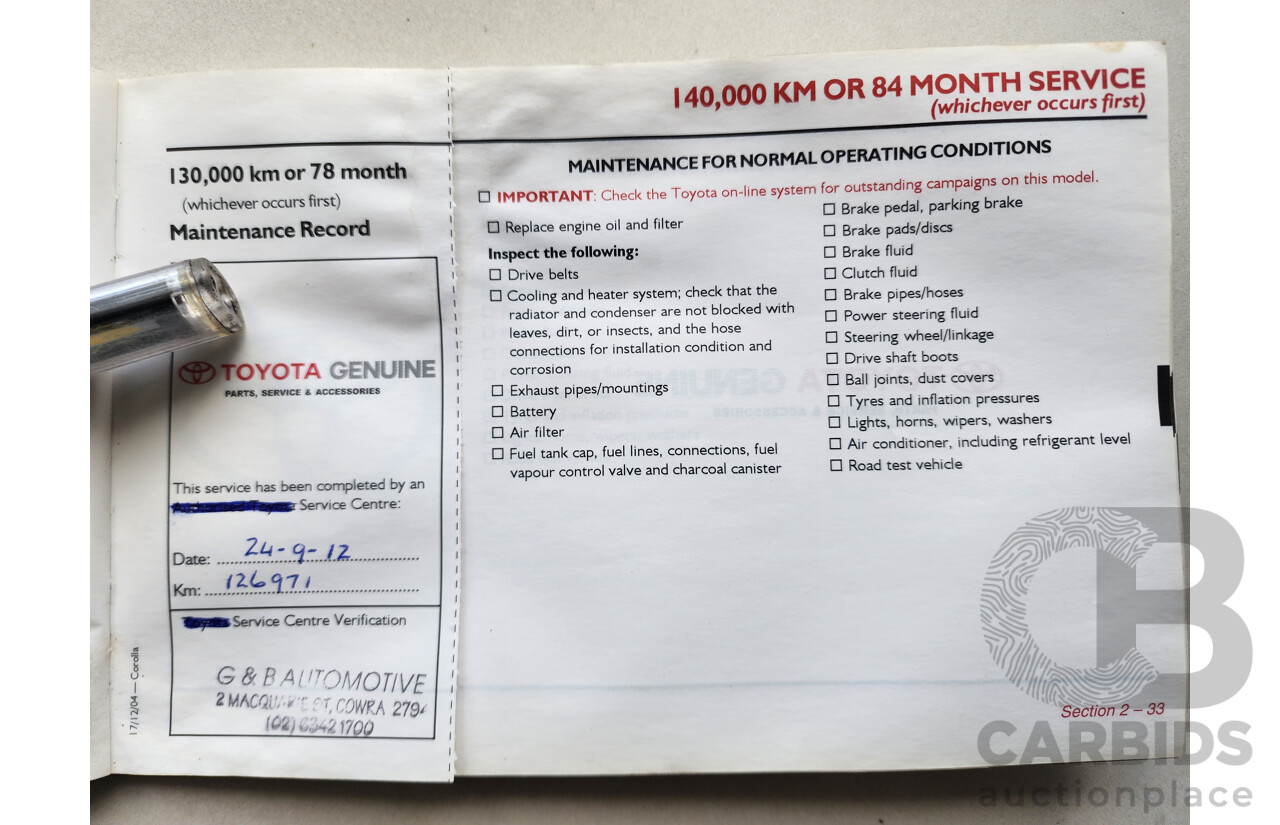 130,000 km or 78 month
(whichever occurs first)
Maintenance Record
TOYOTA GENUINE
PARTS, SERVICE & ACCESSORIES
This service has been completed by an
Service Centre:
Date: 24-9-12
Km: 126971
Service Centre Verification
G & B AUTOMOTIVE
2 MACQUARIE ST, COWRA 2794
(02) 63421700
17/12/04 — Corolla
140,000 KM OR 84 MONTH SERVICE
(whichever occurs first)
MAINTENANCE FOR NORMAL OPERATING CONDITIONS
IMPORTANT: Check the Toyota on-line system for outstanding campaigns on this model.
Replace engine oil and filter
Inspect the following:
Drive belts
Cooling and heater system; check that the
radiator and condenser are not blocked with
leaves, dirt, or insects, and the hose
connections for installation condition and
corrosion
Exhaust pipes/mountings
Battery
Air filter
Fuel tank cap, fuel lines, connections, fuel
vapour control valve and charcoal canister
Brake pedal, parking brake
Brake pads/discs
Brake fluid
Clutch fluid
Brake pipes/hoses
Power steering fluid
Steering wheel/linkage
Drive shaft boots
Ball joints, dust covers
Tyres and inflation pressures
Lights, horns, wipers, washers
Air conditioner, including refrigerant level
Road test vehicle
Section 2 – 33
CB
CARBIDS
auctionplace